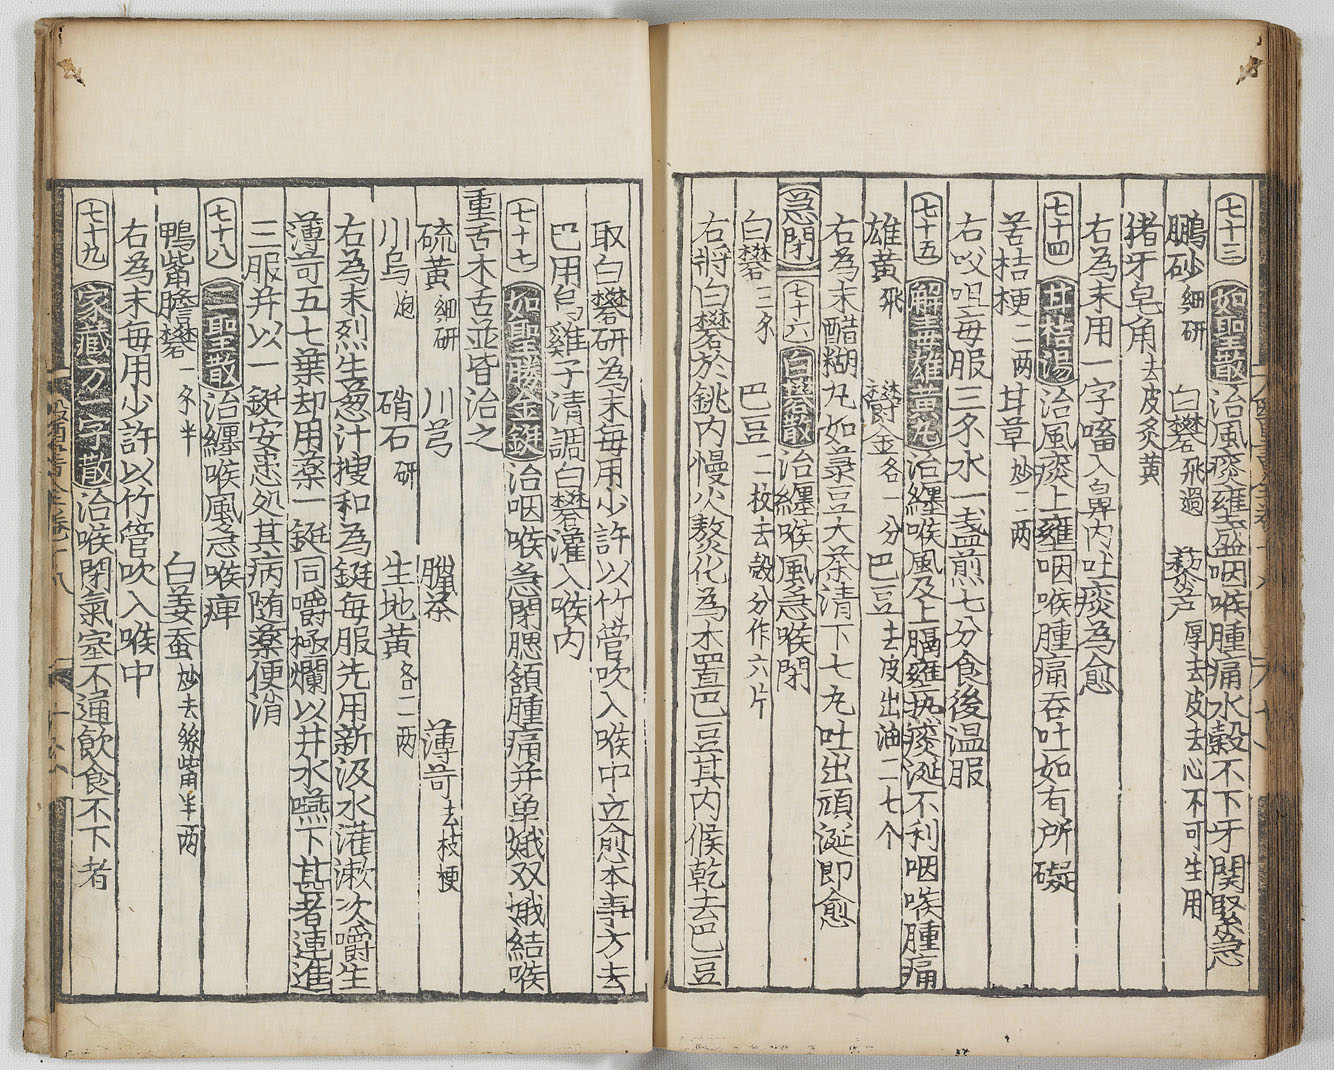 七十三 如聖散 治風痰壅盛咽喉腫痛水穀不下牙関緊急
鵬砂 細研 白礬 飛過 藜芦 厚去皮去心不可生用
猪牙皂角 去皮炙黄
右為末用一字㗜入鼻内吐痰為愈
七十四 甘桔湯 治風痰上壅咽喉腫痛吞吐如有所礙
苦桔梗 二両 甘草 炒二両
右㕮咀每服三𠆤水一盞煎七分食後温服
七十五 解毒雄黄丸 治纒喉風及上膈壅热痰涎不利咽喉腫痛
雄黄 飛 欝金 各一分 巴豆 去皮出油二七个
右為末醋糊丸如菉豆大茶清下七丸吐出頑涎即愈
急閉 七十六 白礬散 治纒喉風急喉閉
白礬 三𠆤 巴豆 二枚去殻分作六片
右将白礬於銚内慢火熬化為水置巴豆其内候乾去巴豆
取白礬研為末每用少許以竹管吹入喉中立愈本事方去
巴用烏雞子清調白礬灌入喉内
七十七 如聖勝金鋌 治咽喉急閉腮頷腫痛并单娥双娥結喉
重舌木舌並皆治之
硫黄 細研 川芎 臘茶 薄苛 去枝梗
川烏 炮 硝石 研 生地黄 各二両
右為末烈生葱汁搜和為鋌每服先用新汲水灌漱次嚼生
薄苛五七葉却用藥一鋌同嚼極爛以井水嚥下甚者連進
三服并以一鋌安患処其病随藥便消
七十八 二聖散 治纒喉風急喉痺
鴨觜膽礬 一𠆤半 白姜蚕 炒去絲觜半両
右為末每用少許以竹管吹入喉中
七十九 家藏方一字散 治喉閉氣塞不通飲食不下者